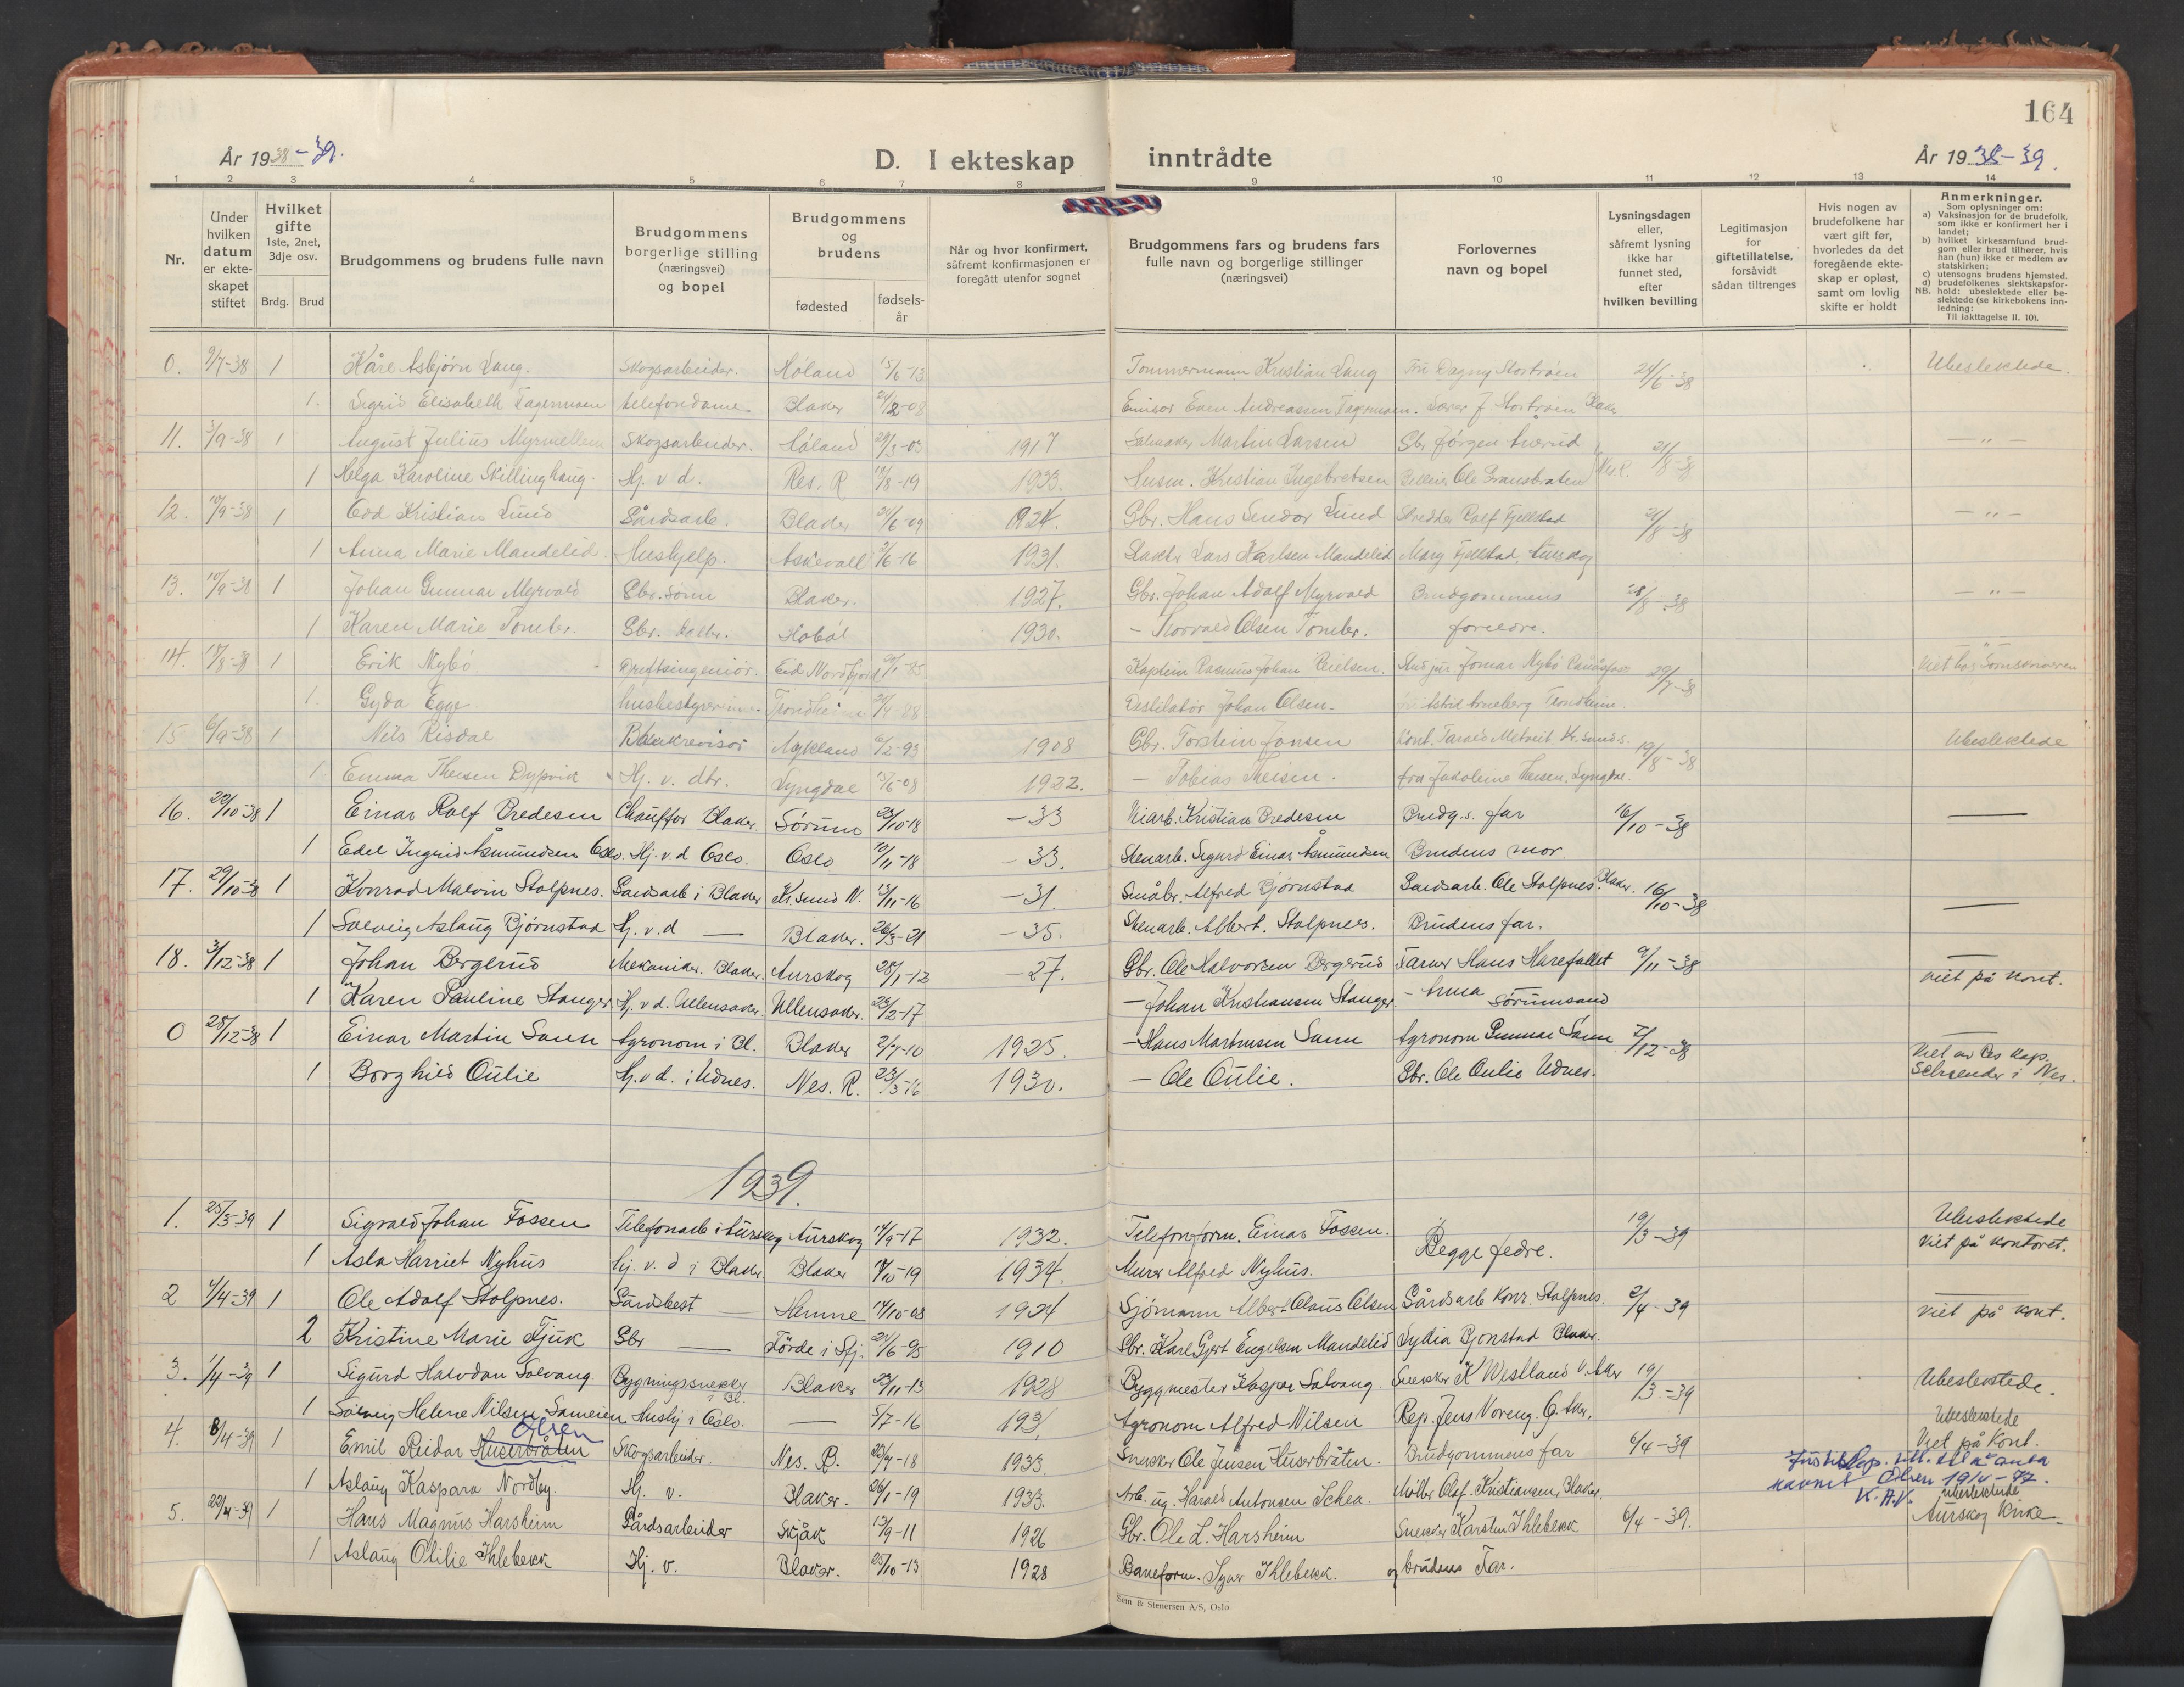 164
År 1938-39.
D. I ekteskap inntrådte
År 1938-39.
1 2 3 4 5 6 7 8 9 10 11 12 13 14
Nr.
Under hvilken datum er ekte-skapet stiftet
Hvilket gifte 1ste, 2net, 3dje osv.
Brdg. Brud
Brudgommens og brudens fulle navn
Brudgommens borgerlige stilling (næringsvei) og bopel
Brudgommens og brudens
fødested
fødsels-år
Når og hvor konfirmert, såfremt konfirmasjonen er foregått utenfor sognet
Brudgommens fars og brudens fars fulle navn og borgerlige stillinger (næringsvei)
Forlovernes navn og bopel
Lysningsdagen eller, såfremt lysning ikke har funnet sted, efter hvilken bevilling
Legitimasjon for giftetillatelse, forsåvidt sådan tiltrenges
Hvis nogen av brudefolkene har vært gift før, hvorledes da det foregående ekte-skap er opløst, samt om lovlig skifte er holdt
Anmerkninger.
Som oplysninger om:
a) Vaksinasjon for de brudefolk, som ikke er konfirmert her i landet;
b) hvilket kirkesamfund brud-gom eller brud tilhører, hvis han (hun) ikke er medlem av statskirken;
c) utensogns brudens hjemsted.
d) brudefolkenes slektskapsfor-
NB. hold: ubeslektede eller be-slektede (se kirkebokens inn-ledning:
Til iakttagelse II. 10).
0. 9/7-38 1 Kåre Asbjørn Laug. Skogsarbeider. Høland 15/6-13 Tømmermann Kristian Laug Fru Dagny Stortrøen 24/6-38 Ubeslektede.
1. Sigrid Elisabeth Fagermoen telefondame Blaker 24/12-08 Even Andreassen Fagermoen. J Stortrøen Blaker
11. 3/9-38 1 August Julius Skogsarbeider. Høland 29/3-03 1917 Martin Larsen Gbr Jørgen 21/8-38 - " -
1 Helga Karoline Skillinghaug. Hj. v d. Nes. R 19/8-19 1933. Husm. Kristian Ingebretsen Nes R.
12. 10/9-38 1 Odd Kristian Lund Gårdsarb. Blaker 24/6-09 1924. Gbr. Hans Lund Rolf Fjellstad 21/8-38 - " -
1 Anna Marie Mandelid. Hushjelp. Askvoll 3/6-16 1931. Lars Karlsen Mandelid Mary Fjellstad, Aurskog
13. 10/9-38 1 Johan Gunnar Myrvold Gbr. sønn Blaker. 1927. Gbr. Johan Adolf Myrvold Brudgommens 28/8-38 - " -
1 Karen Marie Tomter. Gbr. datter. Hobøl 1930. - Thorvald Olsen Tomter. foreldre.
14. 17/8-38 1 Erik Nybø Driftsingeniør. Eid Nordfjord Kaptein Rasmus Johan Stud jur. Jomar Nybø 29/7-38 - " -
1. Gyda Egge husbestyrerinne Trondheim Destilatør Johan Olsen. Astrid Arneberg Trondheim.
15 6/9-38 1 Nils Risdal Bankrevisor 6/2-93 1908 Gbr. Torstein Jonsen 19/8-38 Ubeslektede
1. Emma Theisen Dypvik Hj. v. dtr. Lyngdal 13/6-08 1922. - Tobias Theisen. fru Theisen, Lyngdal.
16. 22/10-38 1 Einar Rolf Bredesen Chauffør Blaker. Sørum 23/10-18 -33 Kristian Bredesen Brudg.s. far 16/10-38 —
1 Edel Ingrid Asmundsen Oslo. Hj. v. d Oslo. Oslo 10/11-18 -33. Stenarb. Sigurd Einar Åsmundsen Brudens mor
17. 29/10-38 1 Konrad Malvin Stolpnes. Gårdsarb i Blaker Kr.sund N. 13/11-16 -31. Småbr. Alfred Bjørnstad Gårdsarb. Ole Stolpnes. Blaker. 16/10-38 —
1 Solveig Aslaug Bjørnstad Hj. v. d — Blaker. 26/3-21 -35. Stenarb. Albert. Stolpnes. Brudens far.
18. 3/12-38 1 Johan Bergerud Mekaniker. Blaker. Aurskog 28/1-12 -27. Gbr. Ole Halvorsen Bergerud Farver Hans Harefallet 9/11-38 —
1 Karen Pauline Stanger Hj. v d. Ullensaker. Ullensaker. 23/2-17 - Johan Kristiansen Stanger - Anna Sørumsand Viet på kont.
0 28/12-38 1 Einar Martin Sann Agronom i Bl. Blaker 2/7-10 1925. - Hans Martinsen Sann Agronom Gunnar Sann 7/12-38 —
1 Borghild Oulie Hj. v d. i Udnes. Nes. R. 23/3-16 1930. - Ole Oulie. Gbr. Ole Oulie Udnes. Viet av Res kap. i Nes.
1939.
1. 25/3-39 1 Sigvald Johan Fossen Telefonarb i Aurskog Aurskog 14/9-17 1932. Telefonform. Einar Fossen. Begge fedre. 19/3-39 Ubeslektede
1 Asla Harriet Nyhus Hj. v. d i Blaker. Blaker 1934. Murer Alfred Nyhus. Viet på kontoret.
2 1/4-39 1 Ole Adolf Stolpnes. Gårdsbest — Hemne 14/10-08 1924 Sjømann Albert Claus Olsen Gårdsarb Konr. Stolpnes. 2/4-39 —
2 Kristine Marie Fjuk Gbr — Førde i Sfj. 24/6-95 1910 Gbr. Karl Gjert Engelsen Mandelid Lydia Bjønstad Blaker. Viet på kont.
3. 1/4-39 1 Sigurd Halvdan Solvang. Bygningssnekker i Bl. Blaker 23/11-13 1928 Byggmester Kaspar Solvang Snekker K Westland V. Aker 19/3-39 Ubeslektede.
1 Solveig Helene Nilsen Sameien Hushj i Oslo. — 5/7-16 193 Agronom Alfred Nilsen Rep. Jens Voreng. Ø. Aker.
4. 8/4-39 1 Emil Reidar Huserbråten Olsen Skogsarbeider. Nes. R. 22/7-18 1933. Snekker Ole Jensen Huserbråten. Brudgommens far 6/4-39 Ubeslektede Viet på Kont.
till. til å anta navnet Olsen K. A. V.
1 Aslaug Kaspara Nordby. Hj. v. Blaker. 26/1-19 1933. Arb. ug. Harald Antonsen Schea. Møller Olaf. Kristiansen, Blaker.
5. 22/4-39 1 Hans Magnus Harsheim Gårdsarbeider Skjåk 13/9-11 1926 Gbr. Ole L. Harsheim Snekker Karsten Ihlebekk 6/4-39. Ubeslektede Aurskog Kirke
1 Aslaug Otilie Ihlebekk Hj. v. Blaker. 25/10-13 1928 Baneform. Syver Ihlebekk. og brudens Far.
Sem & Stenersen A/S, Oslo